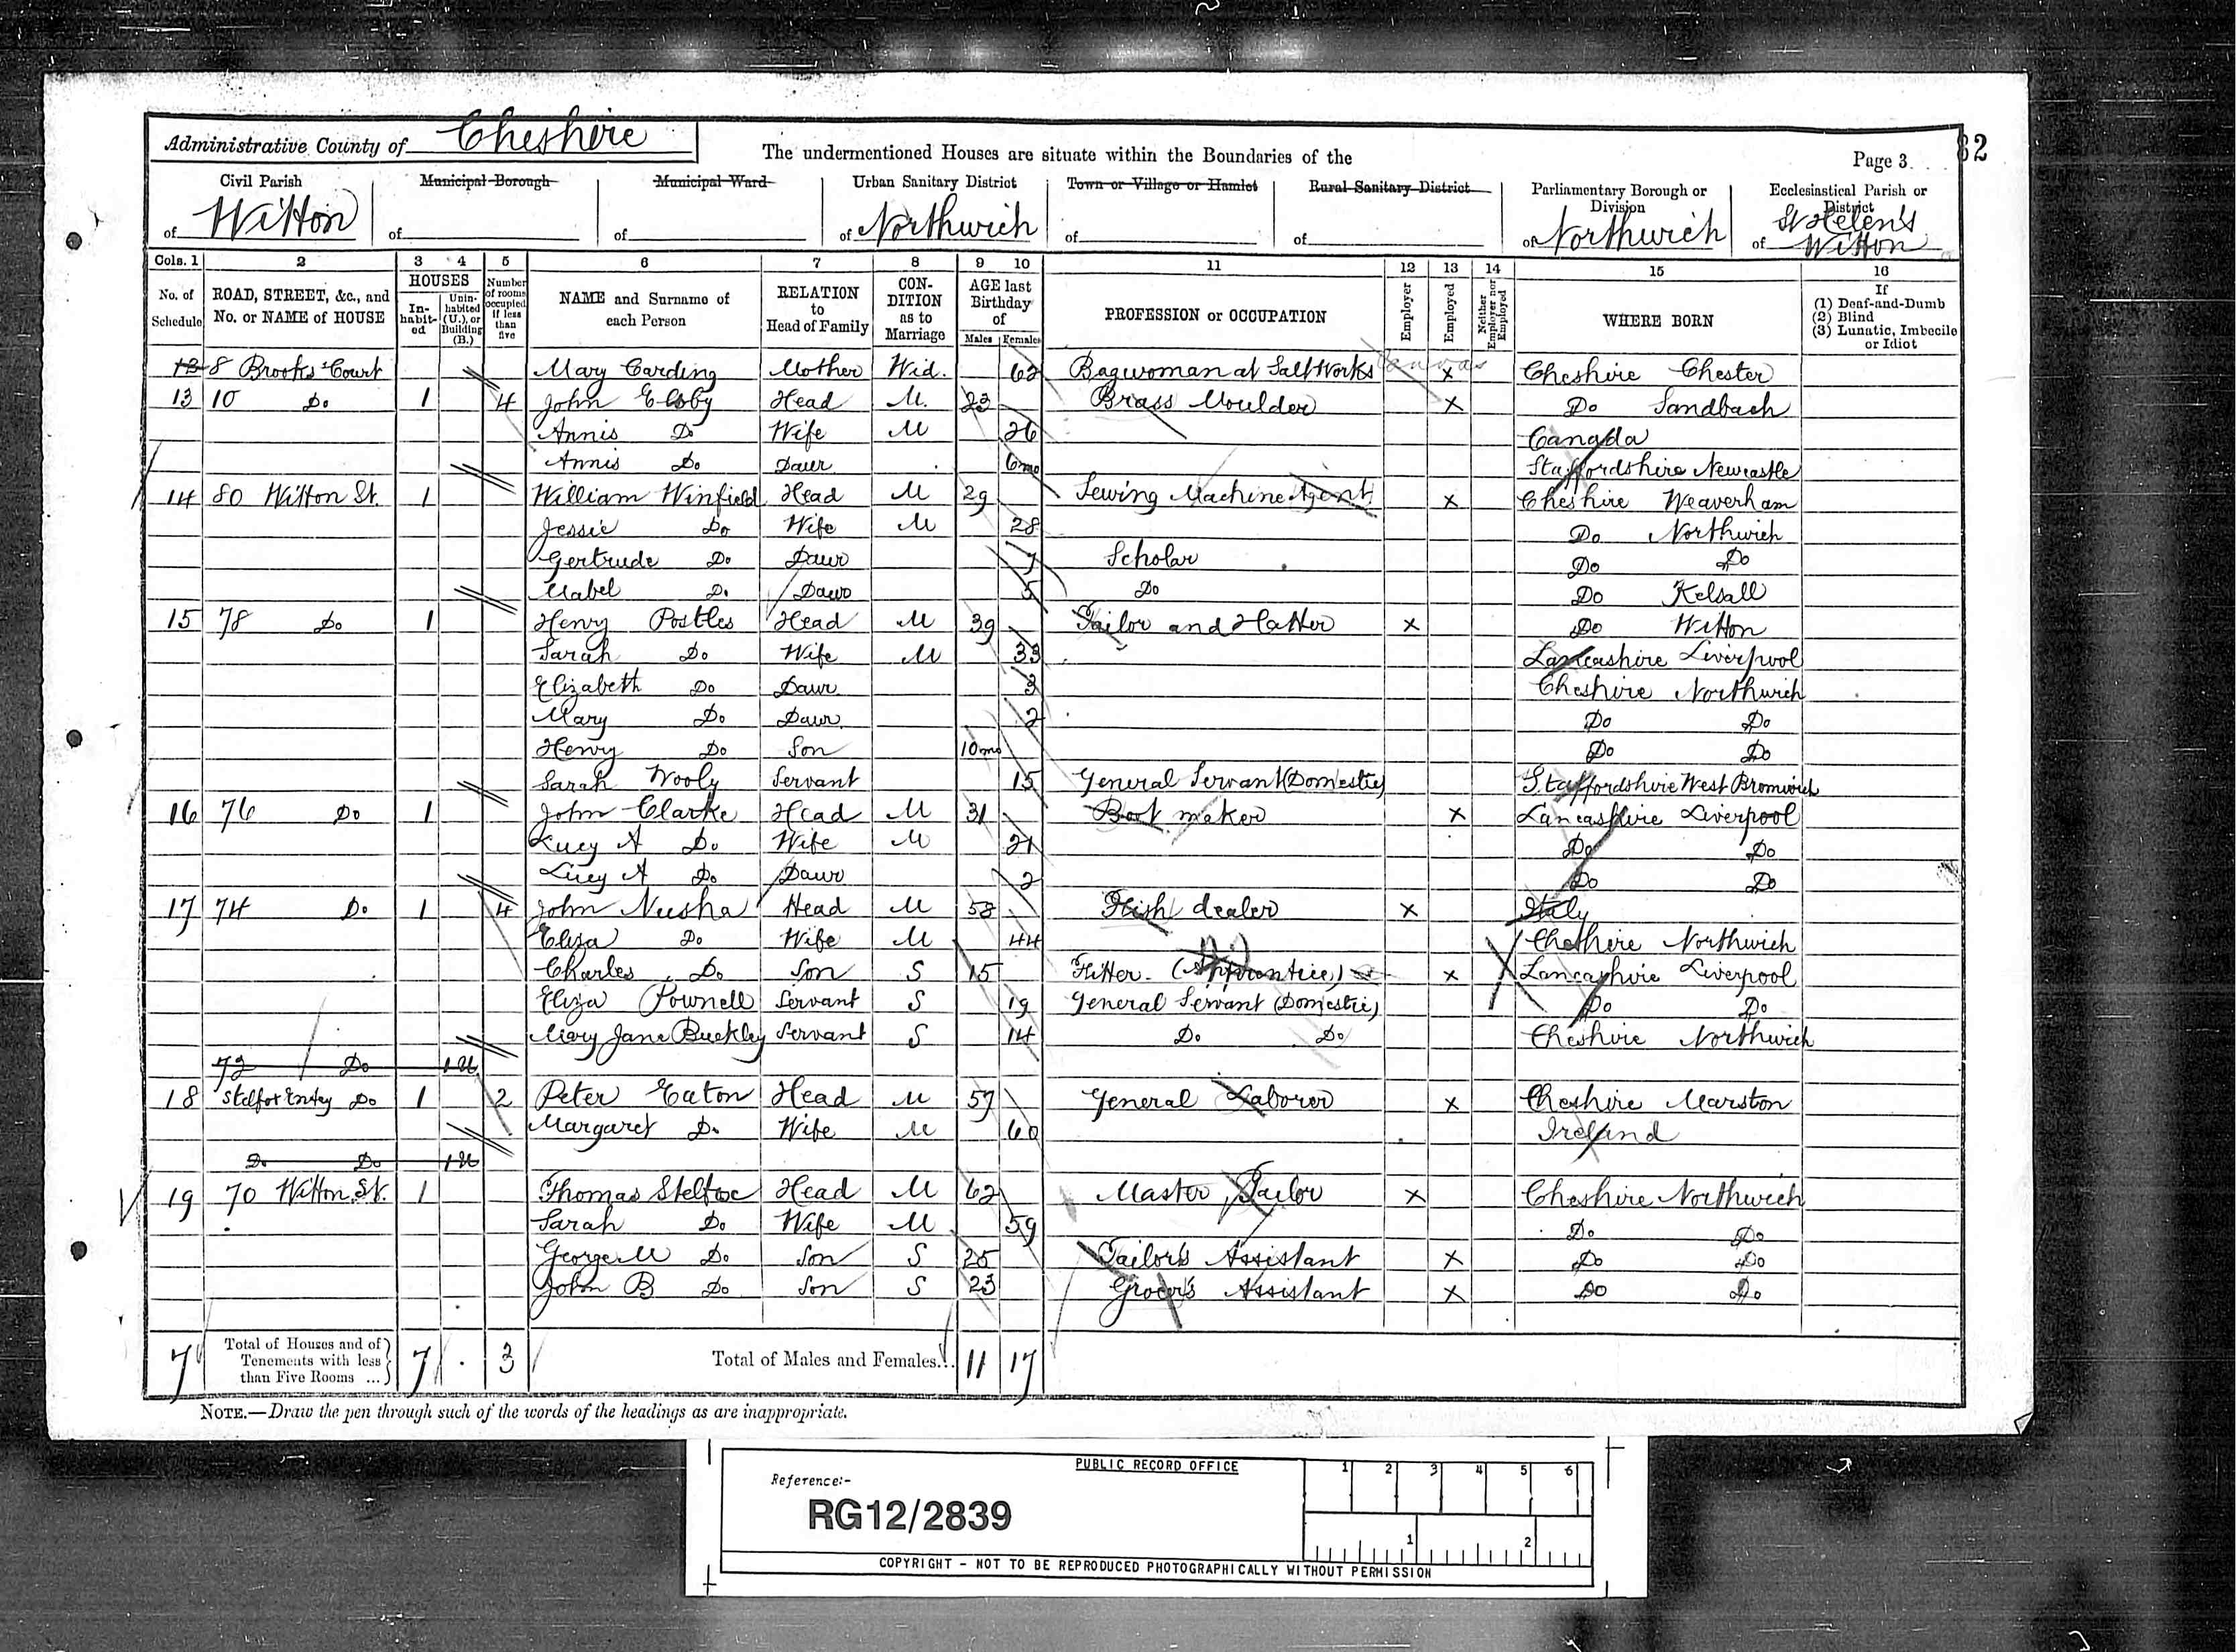 Administrative County of Cheshire
The undermentioned Houses are situate within the Boundaries of the
Page 3
82
Civil Parish of Witton
Municipal Borough of
Municipal Ward of
Urban Sanitary District of Northwich
Town or Village or Hamlet of
Rural Sanitary District of
Parliamentary Borough or Division of Northwich
Ecclesiastical Parish or District of St Helen's Witton
Cols. 1 2 3 4 5 6 7 8 9 10 11 12 13 14 15 16
No. of Schedule
ROAD, STREET, &c., and No. or NAME of HOUSE
HOUSES
In-habit-ed
Unin-habited (U.), or Building (B.)
Number of rooms occupied if less than five
NAME and Surname of each Person
RELATION to Head of Family
CON-DITION as to Marriage
AGE last Birthday of
Males Females
PROFESSION or OCCUPATION
Employer
Employed
Neither Employer nor Employed
WHERE BORN
If (1) Deaf-and-Dumb (2) Blind (3) Lunatic, Imbecile or Idiot
12 8 Brooks Court Mary Carding Mother Wid. 62 Bagwoman at Salt Works x Cheshire Chester
13 10 Do 1 4 John Elsby Head M. 23 Brass Moulder x Do Sandbach
Annis Do Wife M 26 Canada
Annis Do Daur 6mo Staffordshire Newcastle
14 80 Witton St. 1 William Winfield Head M 29 Sewing Machine Agent x Cheshire Weaverham
Jessie Do Wife M 28 Do Northwich
Gertrude Do Daur 7 Scholar Do Do
Mabel Do Daur 5 Do Do Kelsall
15 78 Do 1 Henry Postles Head M 39 Tailor and Hatter x Do Witton
Sarah Do Wife M 33 Lancashire Liverpool
Elizabeth Do Daur 3 Cheshire Northwich
Mary Do Daur 2 Do Do
Henry Do Son 10mo Do Do
Sarah Wooly Servant 15 General Servant (Domestic) Staffordshire West Bromwich
16 76 Do 1 John Clarke Head M 31 Boot maker x Lancashire Liverpool
Lucy A Do Wife M 21 Do Do
Lucy A Do Daur 2 Do Do
17 74 Do 1 4 John Neesha Head M 58 Fish dealer x Italy
Eliza Do Wife M 44 Cheshire Northwich
Charles Do Son S 15 Fitter (Apprentice) x Lancashire Liverpool
Eliza Pownell Servant S 19 General Servant (Domestic) Do Do
Mary Jane Buckley Servant S 14 Do Do Cheshire Northwich
72 Do 1U
18 Stelfox Entry Do 1 2 Peter Eaton Head M 57 General Laborer x Cheshire Marston
Margaret Do Wife M 60 Ireland
Do Do 1U
19 70 Witton St. 1 Thomas Stelfox Head M 62 Master Tailor x Cheshire Northwich
Sarah Do Wife M 59 Do Do
George M Do Son S 25 Tailor's Assistant x Do Do
John B Do Son S 23 Grocer's Assistant x Do Do
7 Total of Houses and of Tenements with less than Five Rooms ... 7 3 Total of Males and Females... 11 17
NOTE.—Draw the pen through such of the words of the headings as are inappropriate.
PUBLIC RECORD OFFICE
1 2 3 4 5 6
Reference:-
RG12/2839
1 2
COPYRIGHT - NOT TO BE REPRODUCED PHOTOGRAPHICALLY WITHOUT PERMISSION